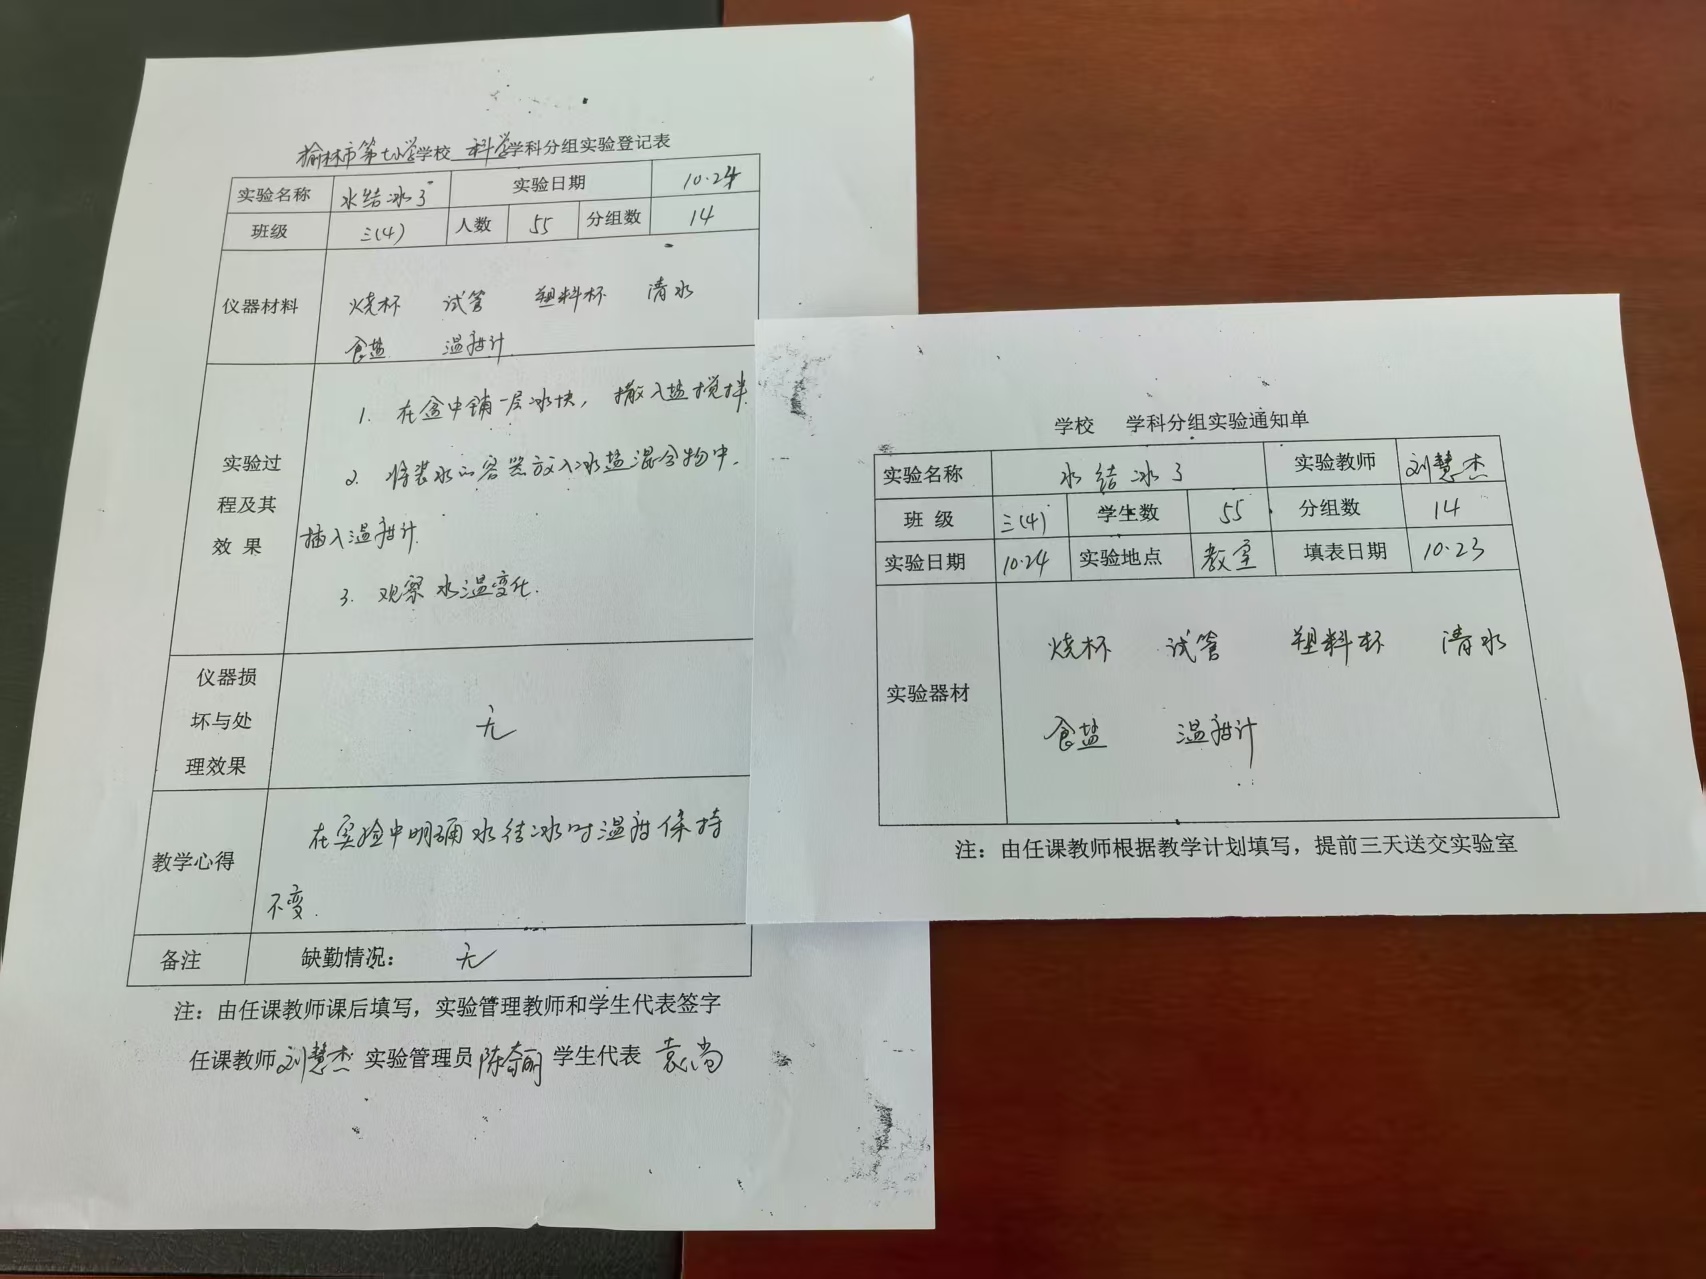 榆林市第七小学学校 科学学科分组实验登记表
实验名称 水结冰了 实验日期 10.24
班级 三(4) 人数 55 分组数 14
仪器材料 烧杯 试管 塑料杯 清水
食盐 温度计
实验过程及其效果
1. 在盒中铺一层冰块，撒入盐搅拌
2. 将装水的容器放入冰盐混合物中，
插入温度计.
3. 观察水温变化.
仪器损坏与处理效果 无
教学心得 在实验中明确水结冰时温度保持
不变.
备注 缺勤情况： 无
注：由任课教师课后填写，实验管理教师和学生代表签字
任课教师 刘慧杰 实验管理员 陈奇丽 学生代表 袁尚
学校 学科分组实验通知单
实验名称 水结冰了 实验教师 刘慧杰
班 级 三(4) 学生数 55 分组数 14
实验日期 10.24 实验地点 教室 填表日期 10.23
实验器材 烧杯 试管 塑料杯 清水
食盐 温度计
注：由任课教师根据教学计划填写，提前三天送交实验室